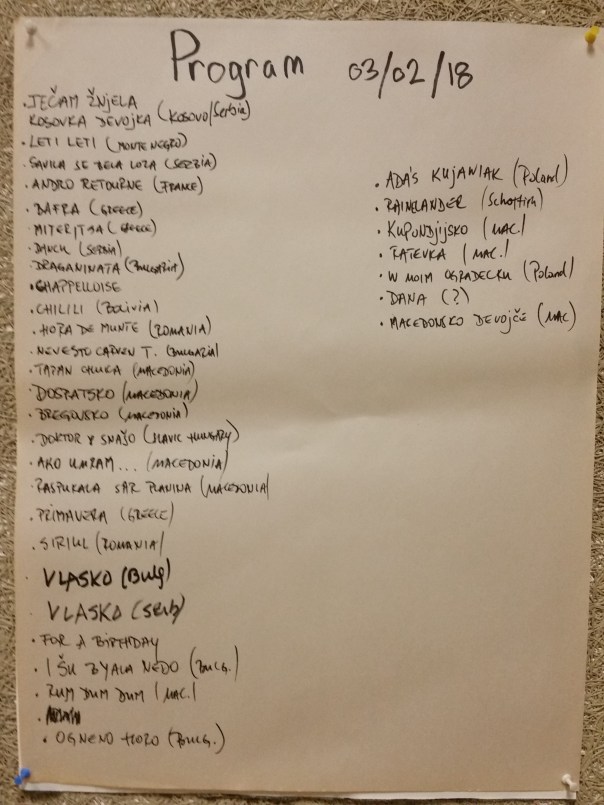 Program 03/02/18
• JEČAM ŽNJELA
KOSOVKA DEVOJKA (KOSOVO/Serbia)
• LETI LETI (MONTENEGRO)
SAVILA SE BELA LOZA (SERBIA)
• ANDRO RETOURNE (FRANCE)
• BAFRA (GREECE)
• MITERITSA (GREECE)
• (SERBIA)
DRAGANINATA (BULGARIA)
• CHAPPELLOISE
• CHILILI (BOLIVIA)
• HORA DE MUNTE (ROMANIA)
• NEVESTO CARVEN T. (BULGARIA)
• TAPAN CHUKA (MACEDONIA)
DOSPATSKO (MACEDONIA)
• BREGOVSKO (MACEDONIA)
• DOKTOR Y SNAŠO (SLAVIC HUNGARY)
• AKO UMRAM... (MACEDONIA)
RASPUKALA ŠAR PLANINA (MACEDONIA)
• PRIMAVERA (GREECE)
• SIRIUL (ROMANIA)
VLAŠKO (Bulg)
VLASKO (Serb)
• FOR A BIRTHDAY
• I ŠU ZYALA NEDO (BULG.)
• RUM DUM DUM (MAC.)
• OGNENO HORO (BULG.)
• ADA'S KUJAWIAK (Poland)
• RAINLANDER (Schottish)
• KUPONDJIJSKO (MAC.)
• RATEVKA (MAC.)
• W MOIM OGRADECKU (Poland)
• DANA (?)
• MACEDONSKO DEVOJČE (MAC)